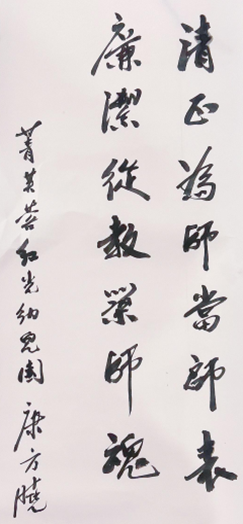 清正為師當師表
廉潔從教榮師魂
菁英荟红光幼児園 康方曉